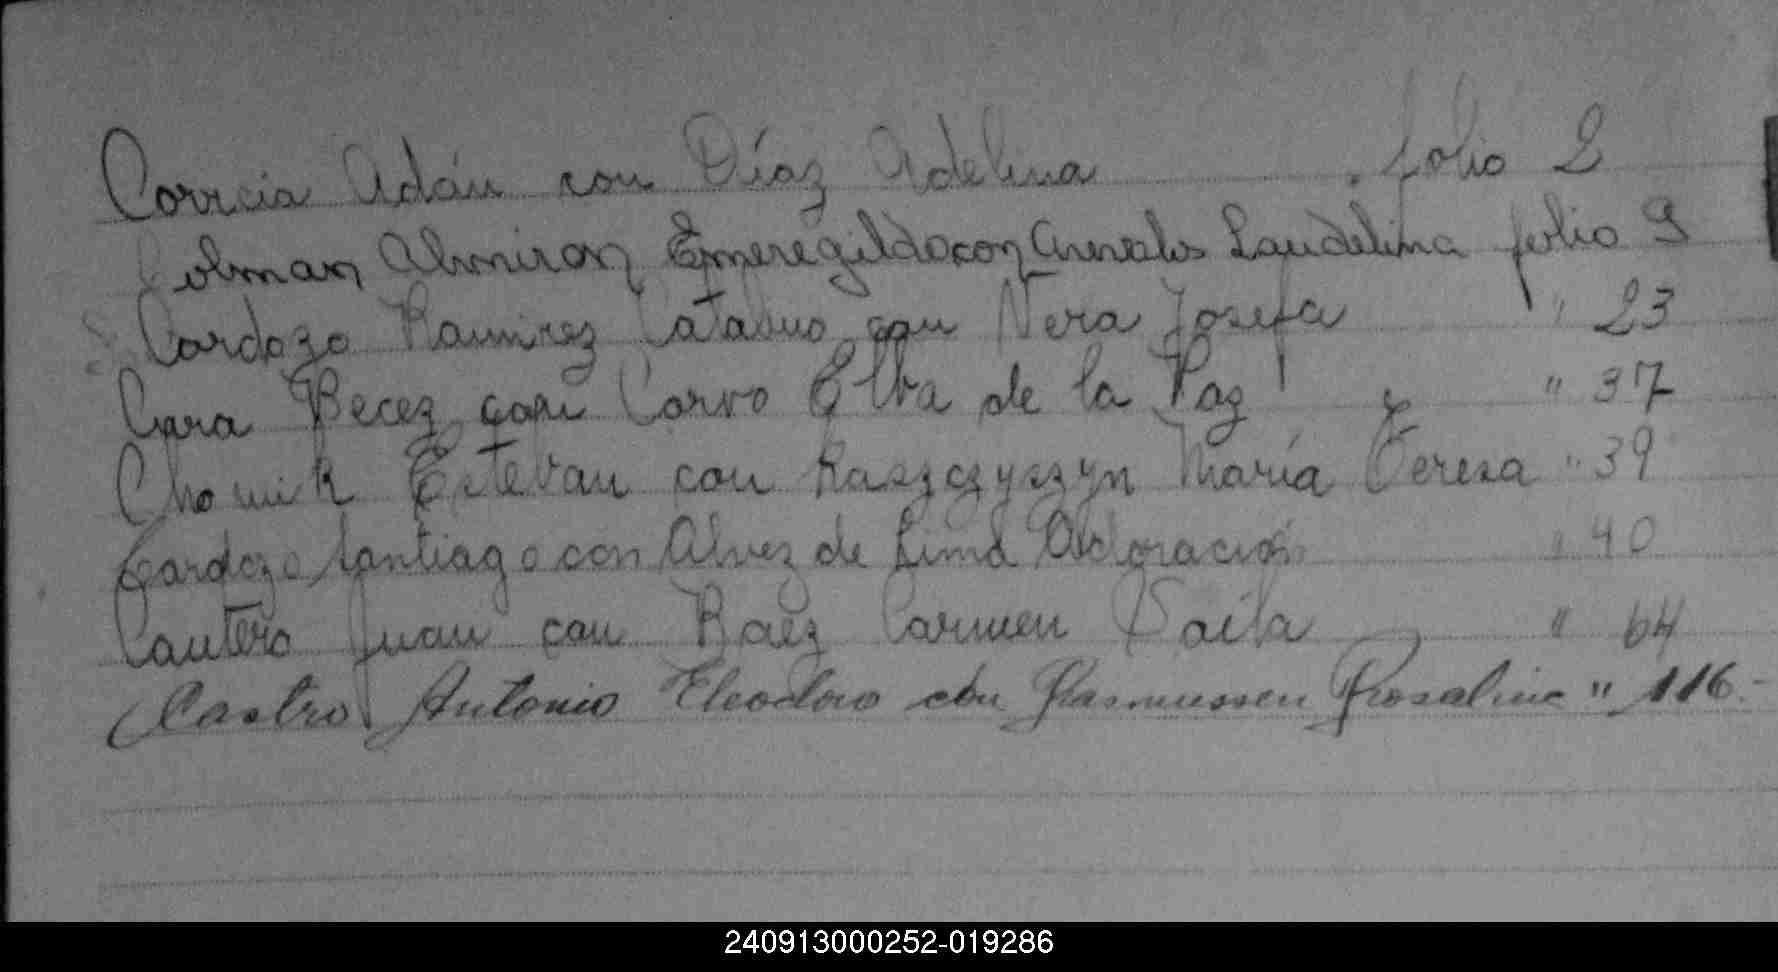 Correia Adán con Díaz Adelina folio 2
Colman Almiron Emeregildo con Arevalos Laudelina folio 9
Cardozo Ramirez Catalino con Vera Josefa " 23
Cara Becez con Corvo Elba de la Paz " 37
Chomik Estevan con Raszczyszyn María Teresa " 39
Cardozo Santiago con Alvez de Lima Adoración " 40
Cantero Juan con Baez Carmen Dalila " 64
Castro, Antonio Eleodoro con Rasmussen Rosalina " 116.-
240913000252-019286